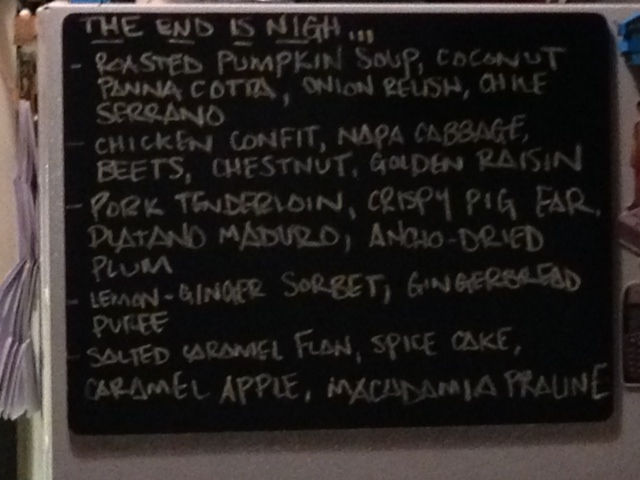 THE END IS NIGH...
- ROASTED PUMPKIN SOUP, COCONUT
PANNA COTTA, ONION RELISH, CHILE
SERRANO
- CHICKEN CONFIT, NAPA CABBAGE,
BEETS, CHESTNUT, GOLDEN RAISIN
- PORK TENDERLOIN, CRISPY PIG EAR,
PLATANO MADURO, ANCHO-DRIED
PLUM
- LEMON-GINGER SORBET, GINGERBREAD
PUREE
- SALTED CARAMEL FLAN, SPICE CAKE,
CARAMEL APPLE, MACADAMIA PRALINE